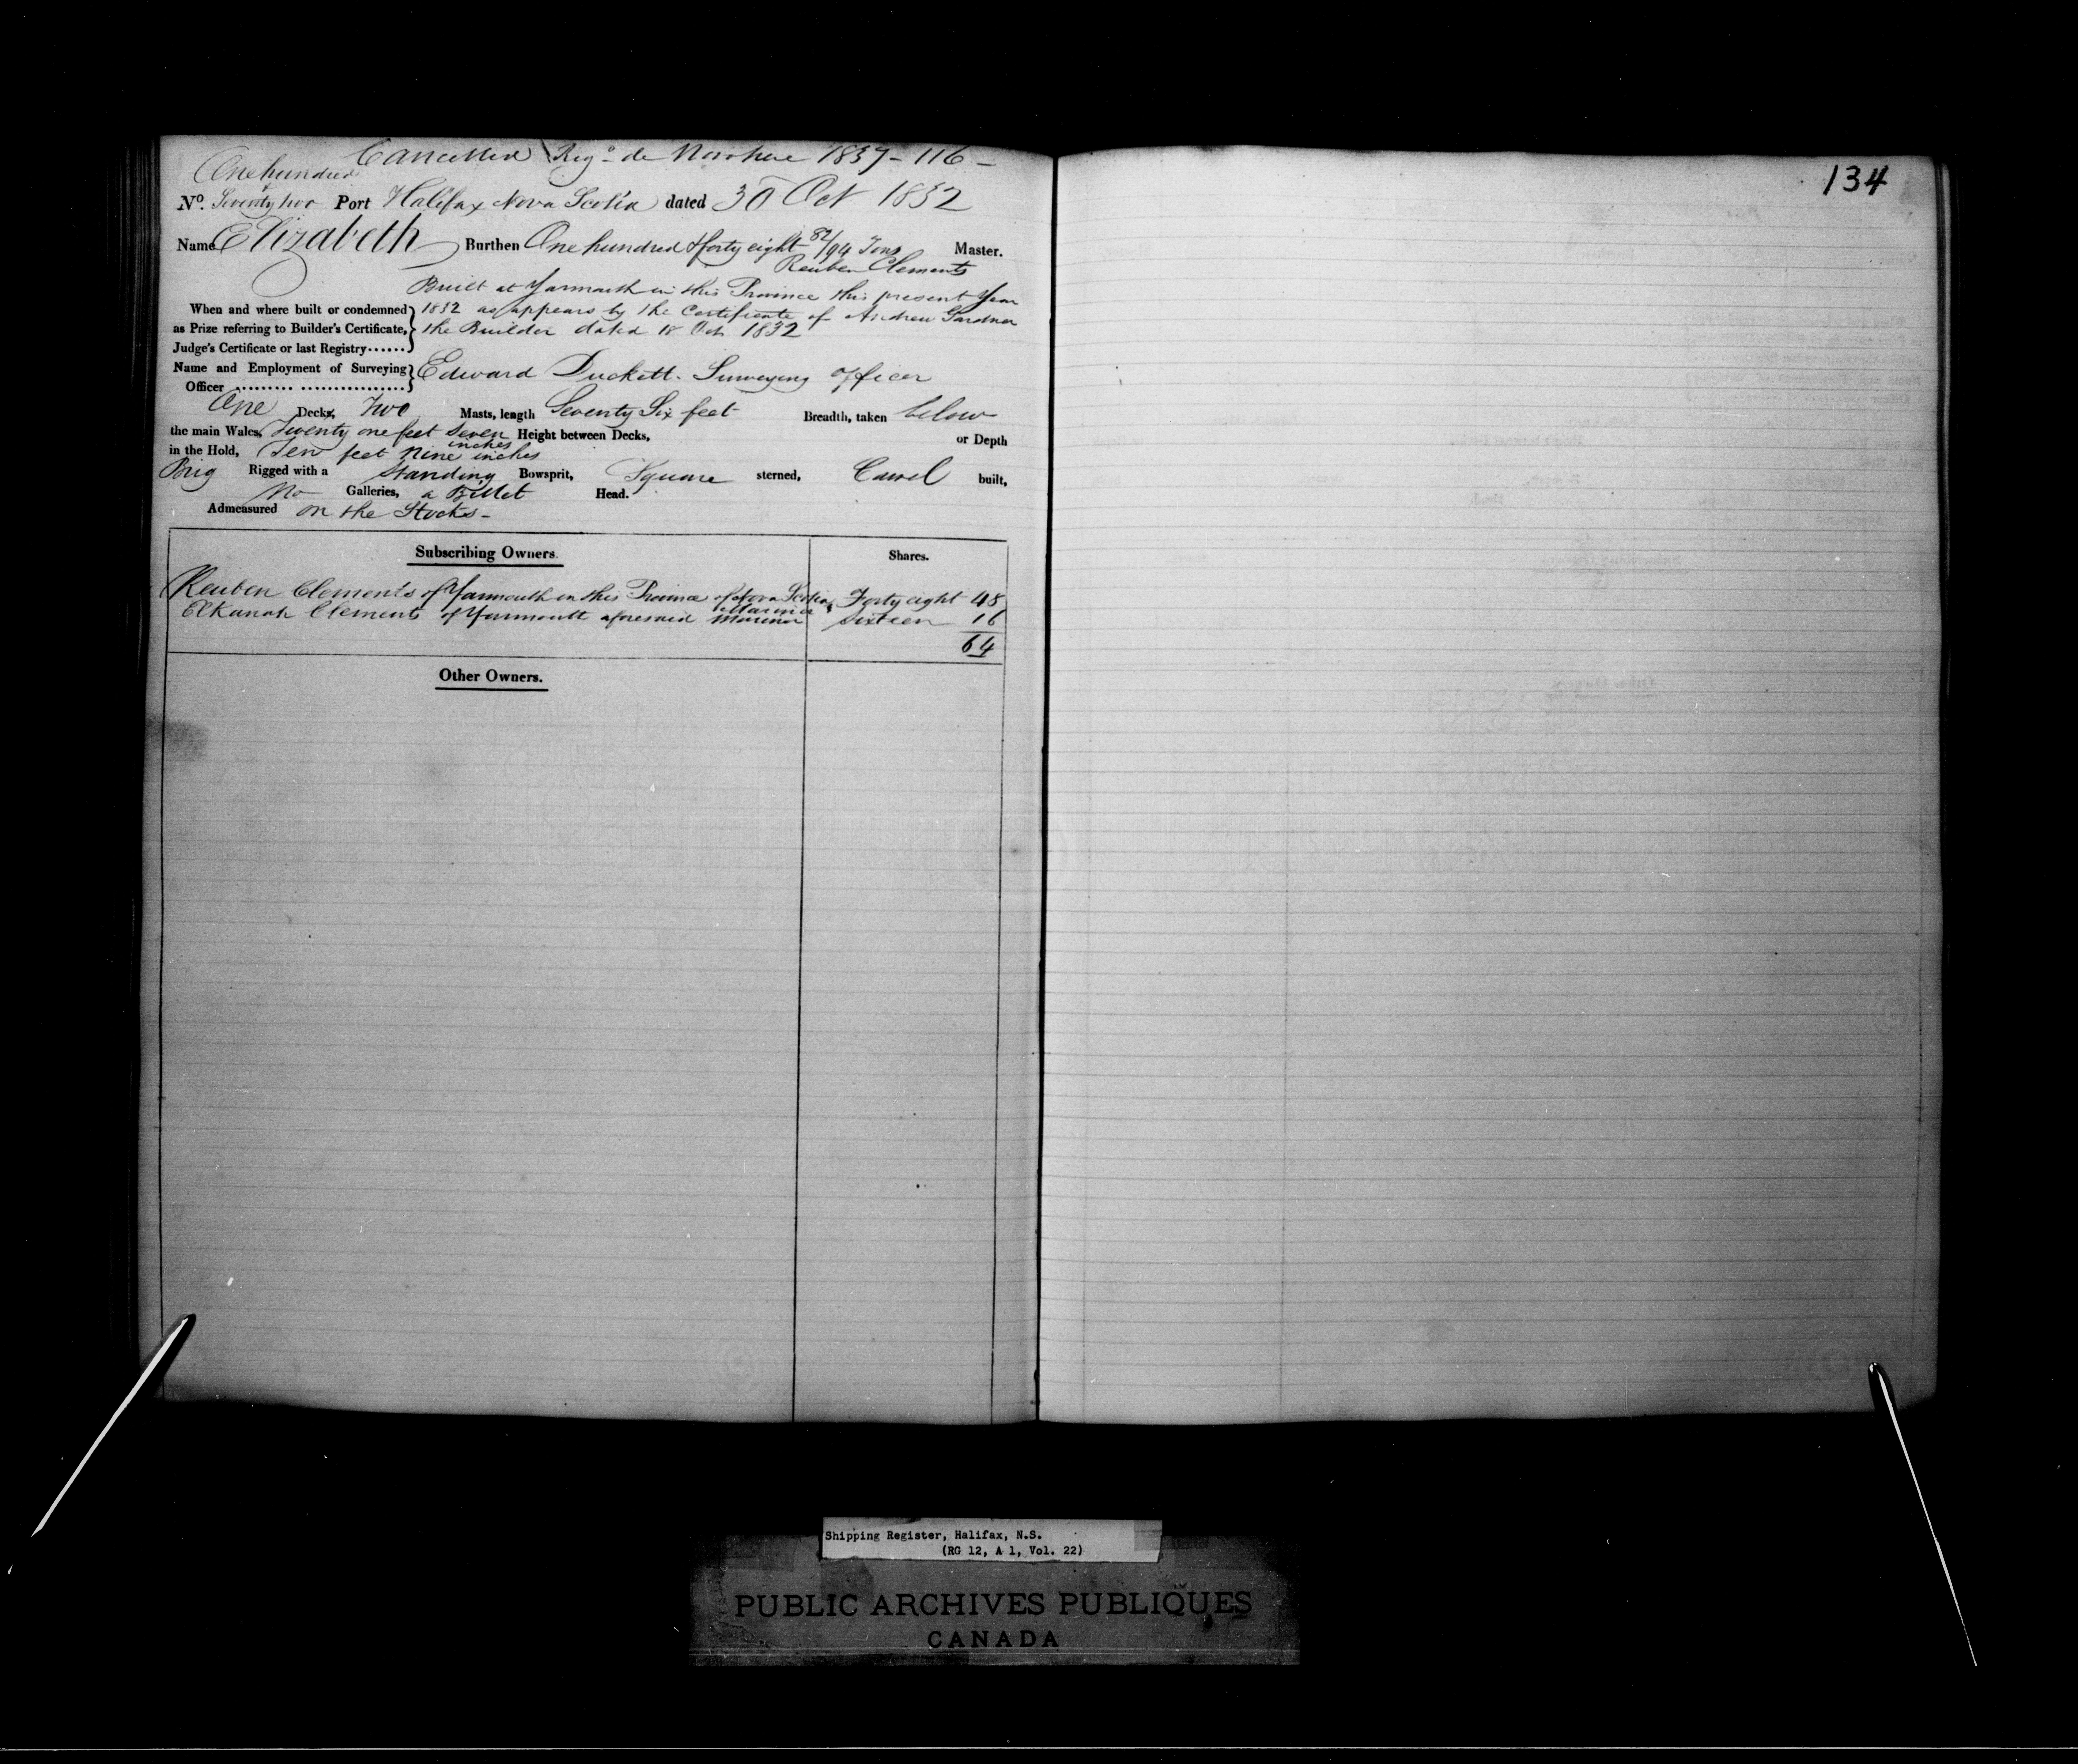 Cancelled Reg.o de Novo here 1837 - 116 -
One hundred &
No. Seventy two Port Halifax Nova Scotia dated 30 Oct 1832
Name Elizabeth Burthen One hundred & forty eight 82/94 Tons Master.
Reuben Clements
Built at Yarmouth in this Province this present Year
When and where built or condemned 1832 as appears by the Certificate of Andrew Gardner
as Prize referring to Builder's Certificate, the Builder dated 18 Oct 1832
Judge's Certificate or last Registry......
Name and Employment of Surveying Edward Duckett. Surveying officer
Officer ......... ................
One Decks, Two Masts, length Seventy Six feet Breadth, taken below
the main Wales, Twenty one feet Seven inches Height between Decks, or Depth
in the Hold, Ten feet nine inches
Brig Rigged with a Standing Bowsprit, Square sterned, Carvel built,
No Galleries, a Billet Head.
Admeasured on the Stocks -
Subscribing Owners. Shares.
Reuben Clements of Yarmouth in this Province of Nova Scotia Mariner Forty eight 48
Elkanah Clements of Yarmouth aforesaid Mariner Sixteen 16
64
Other Owners.
134
Shipping Register, Halifax, N.S.
(RG 12, A 1, Vol. 22)
PUBLIC ARCHIVES PUBLIQUES
CANADA